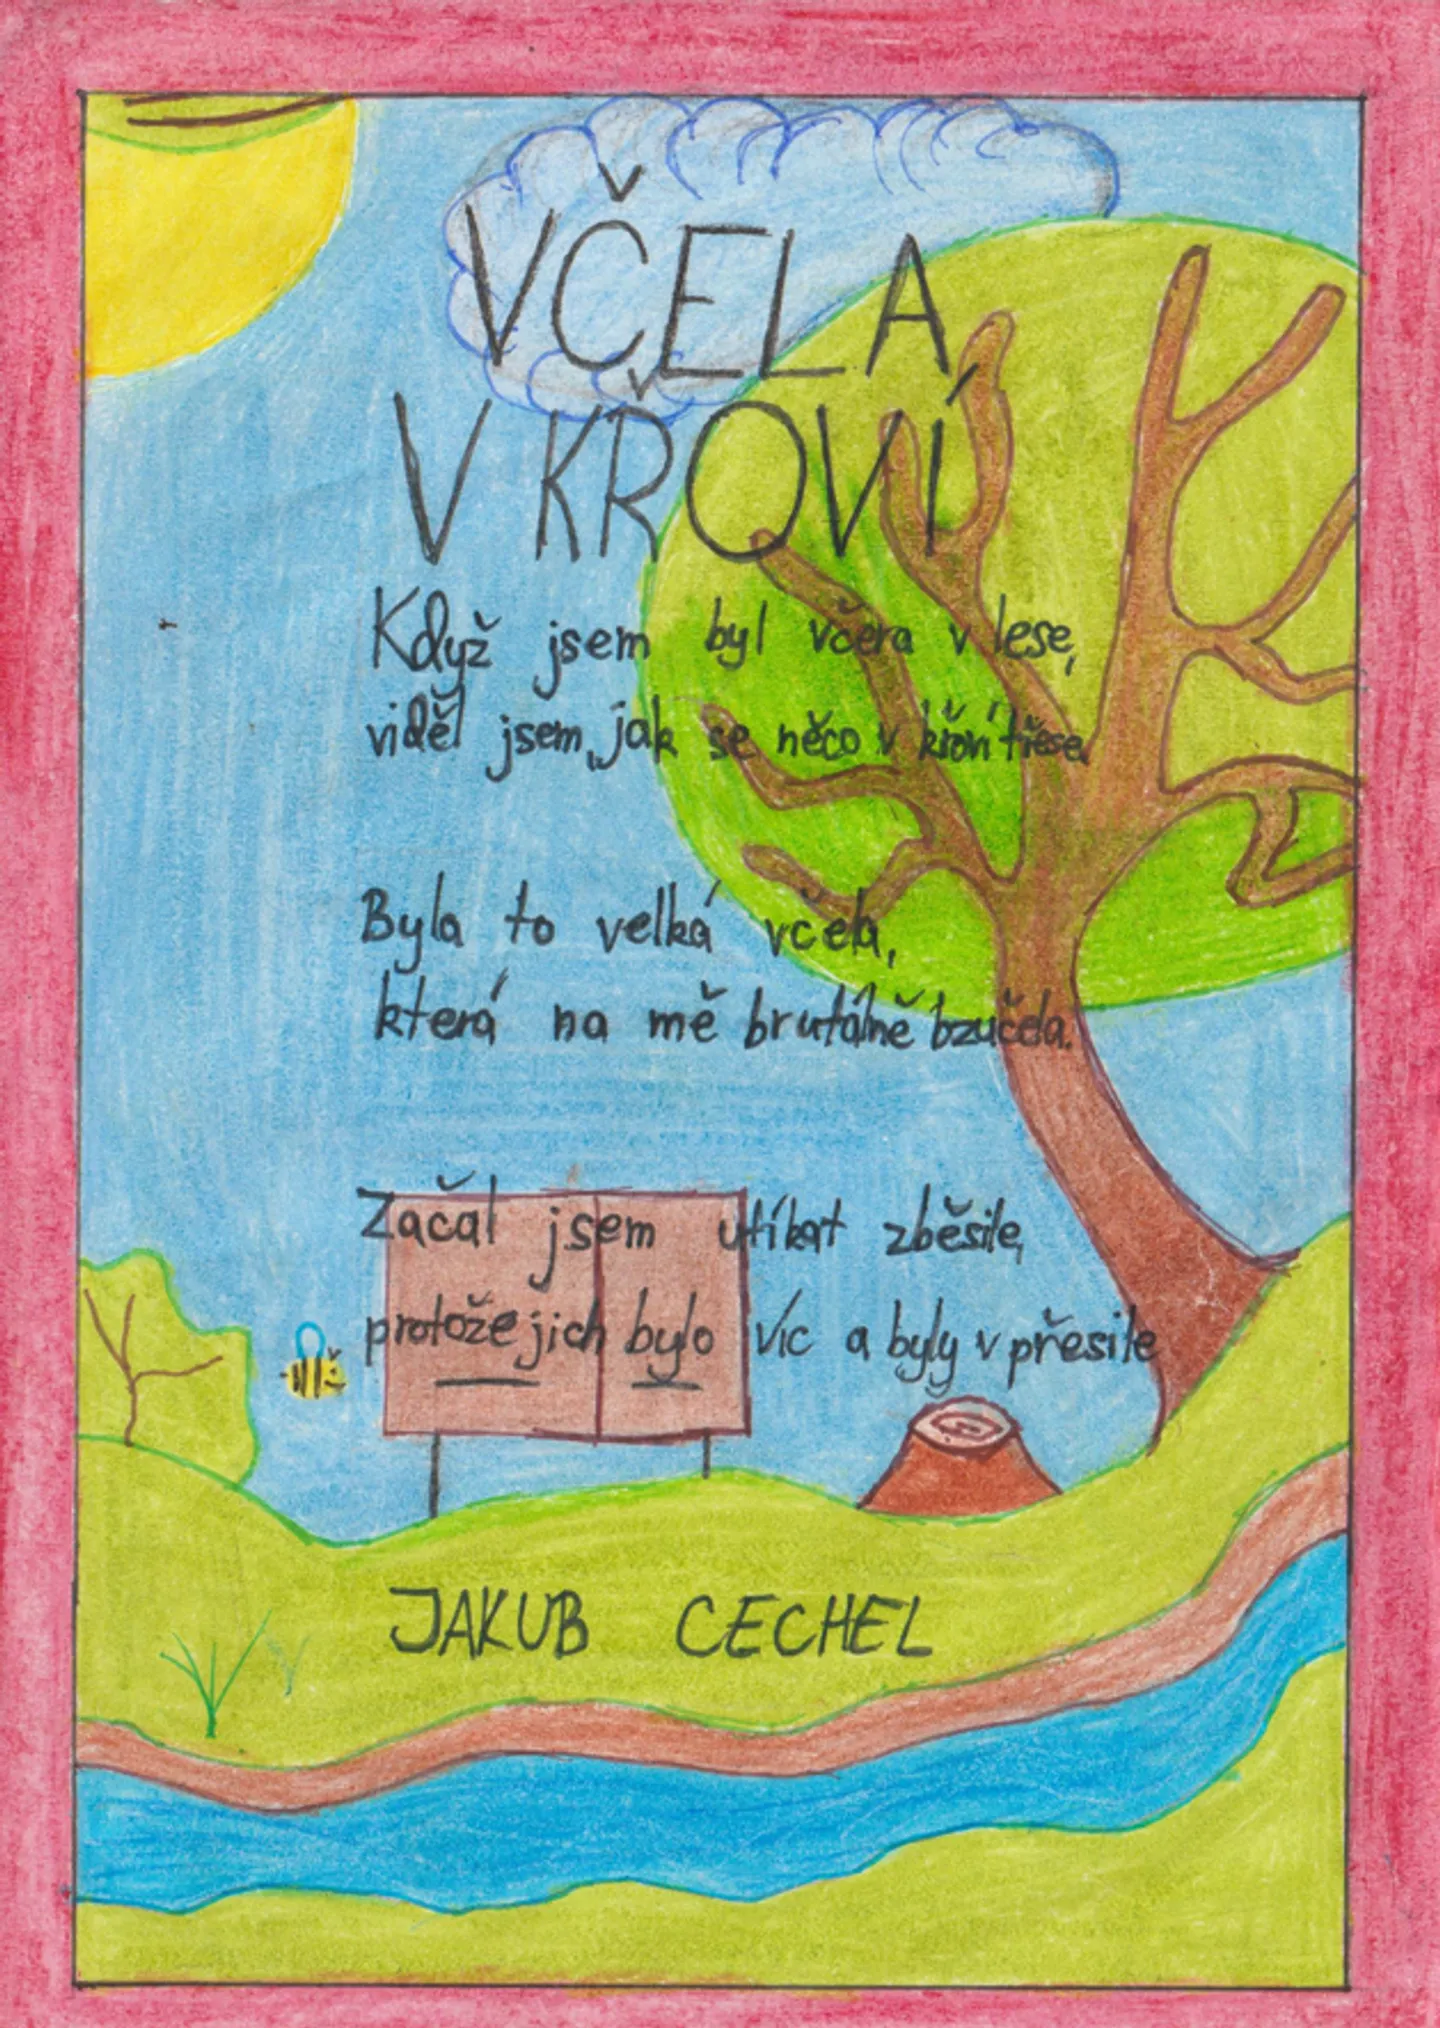 VČELA
V KŘOVÍ
Když jsem byl včera v lese,
viděl jsem, jak se něco v křoví třese.
Byla to velká včela,
která na mě brutálně bzučela.
Začal jsem utíkat zběsile,
protože jich bylo víc a byly v přesile
JAKUB CECHEL